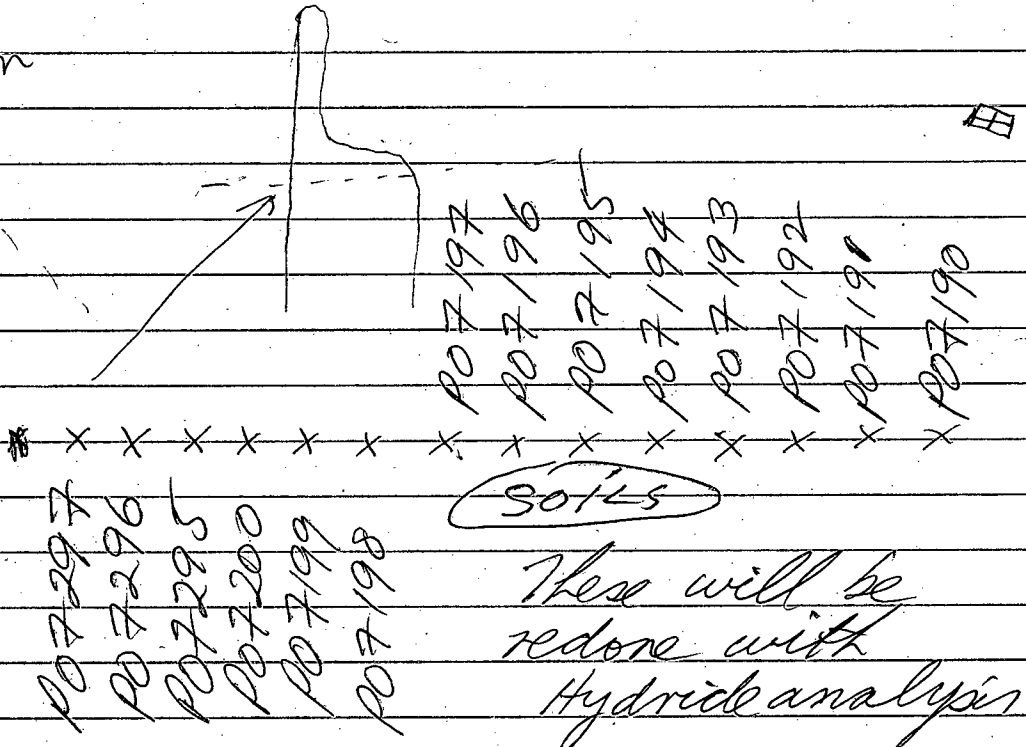 P07197
P07196
P07195
P07194
P07193
P07192
P07191
P07190
x x x x x x x x x x x x x x
P07297
P07296
P07295
P07200
P07199
P07198
SOILS
These will be
redone with
Hydride analysis